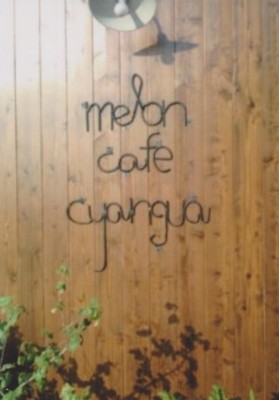 melon
cafe
cyangua